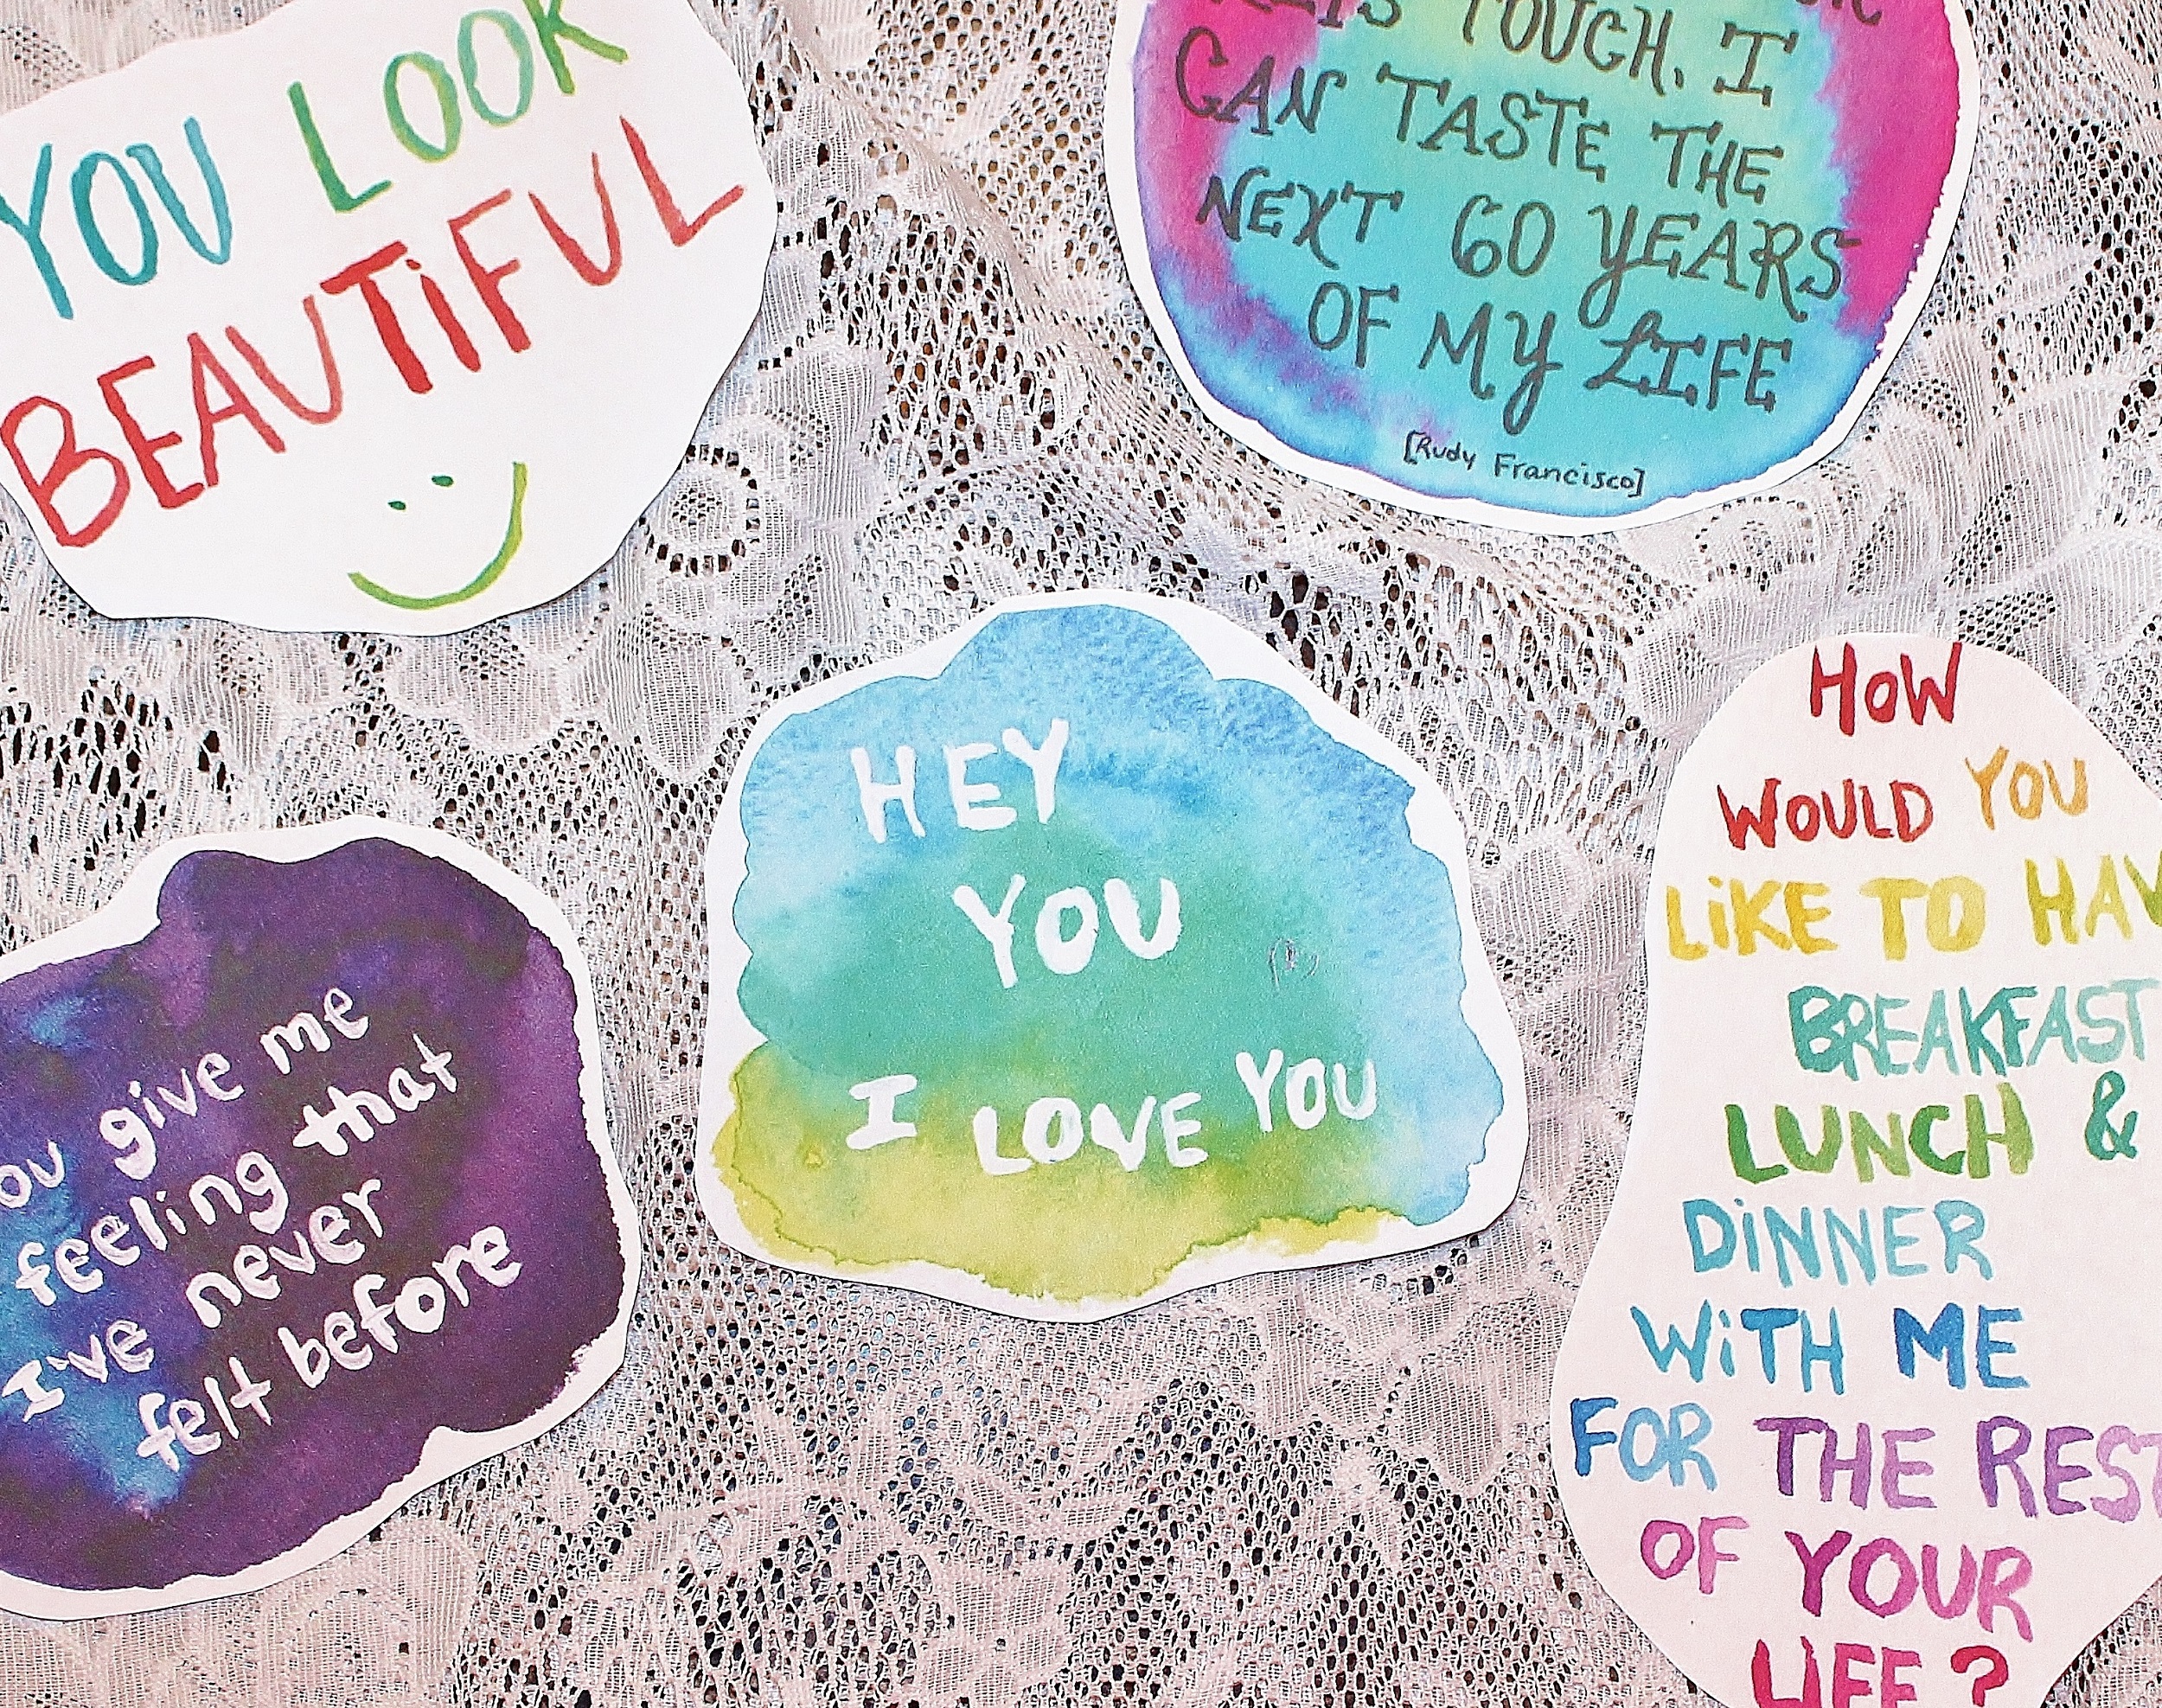 YOU LOOK
BEAUTiFUL
TOUGH, I
CAN TASTE THE
NEXT 60 YEARS
OF MY LIFE
[Rudy Francisco]
HEY
YOU
I LOVE YOU
give me
feeling that
I've never
felt before
HOW
WOULD YOU
LiKE TO HAV
BREAKFAST
LUNCH &
DiNNER
WiTH ME
FOR THE REST
OF YOUR
LIFE?